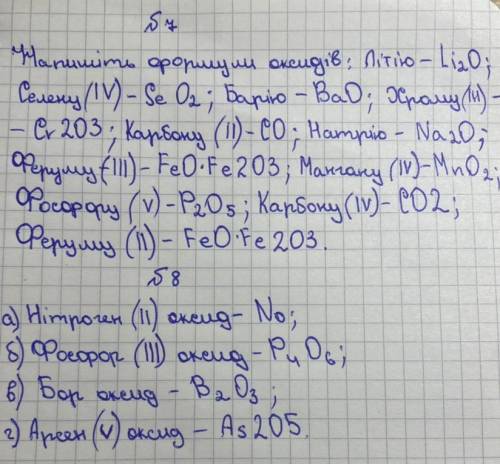 №7
Напишіть формули оксидів: Літію – Li2O;
Селену (IV) – Se O2; Барію – BaO; Хрому (III) –
– Cr2O3; Карбону (II) – CO; Натрію – Na2O;
Феруму (III) – FeO·Fe2O3; Мангану (IV) – MnO2;
Фосфору (V) – P2O5; Карбону (IV) – CO2;
Феруму (II) – FeO·Fe2O3.
№8
а) Нітроген (II) оксид – No;
б) Фосфор (III) оксид – P4O6;
в) Бор оксид – B2O3;
г) Арсен (V) оксид – As2O5.